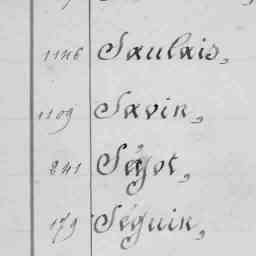 1146 Saulais,
1109 Savin,
241 Ségot,
179 Séguin,